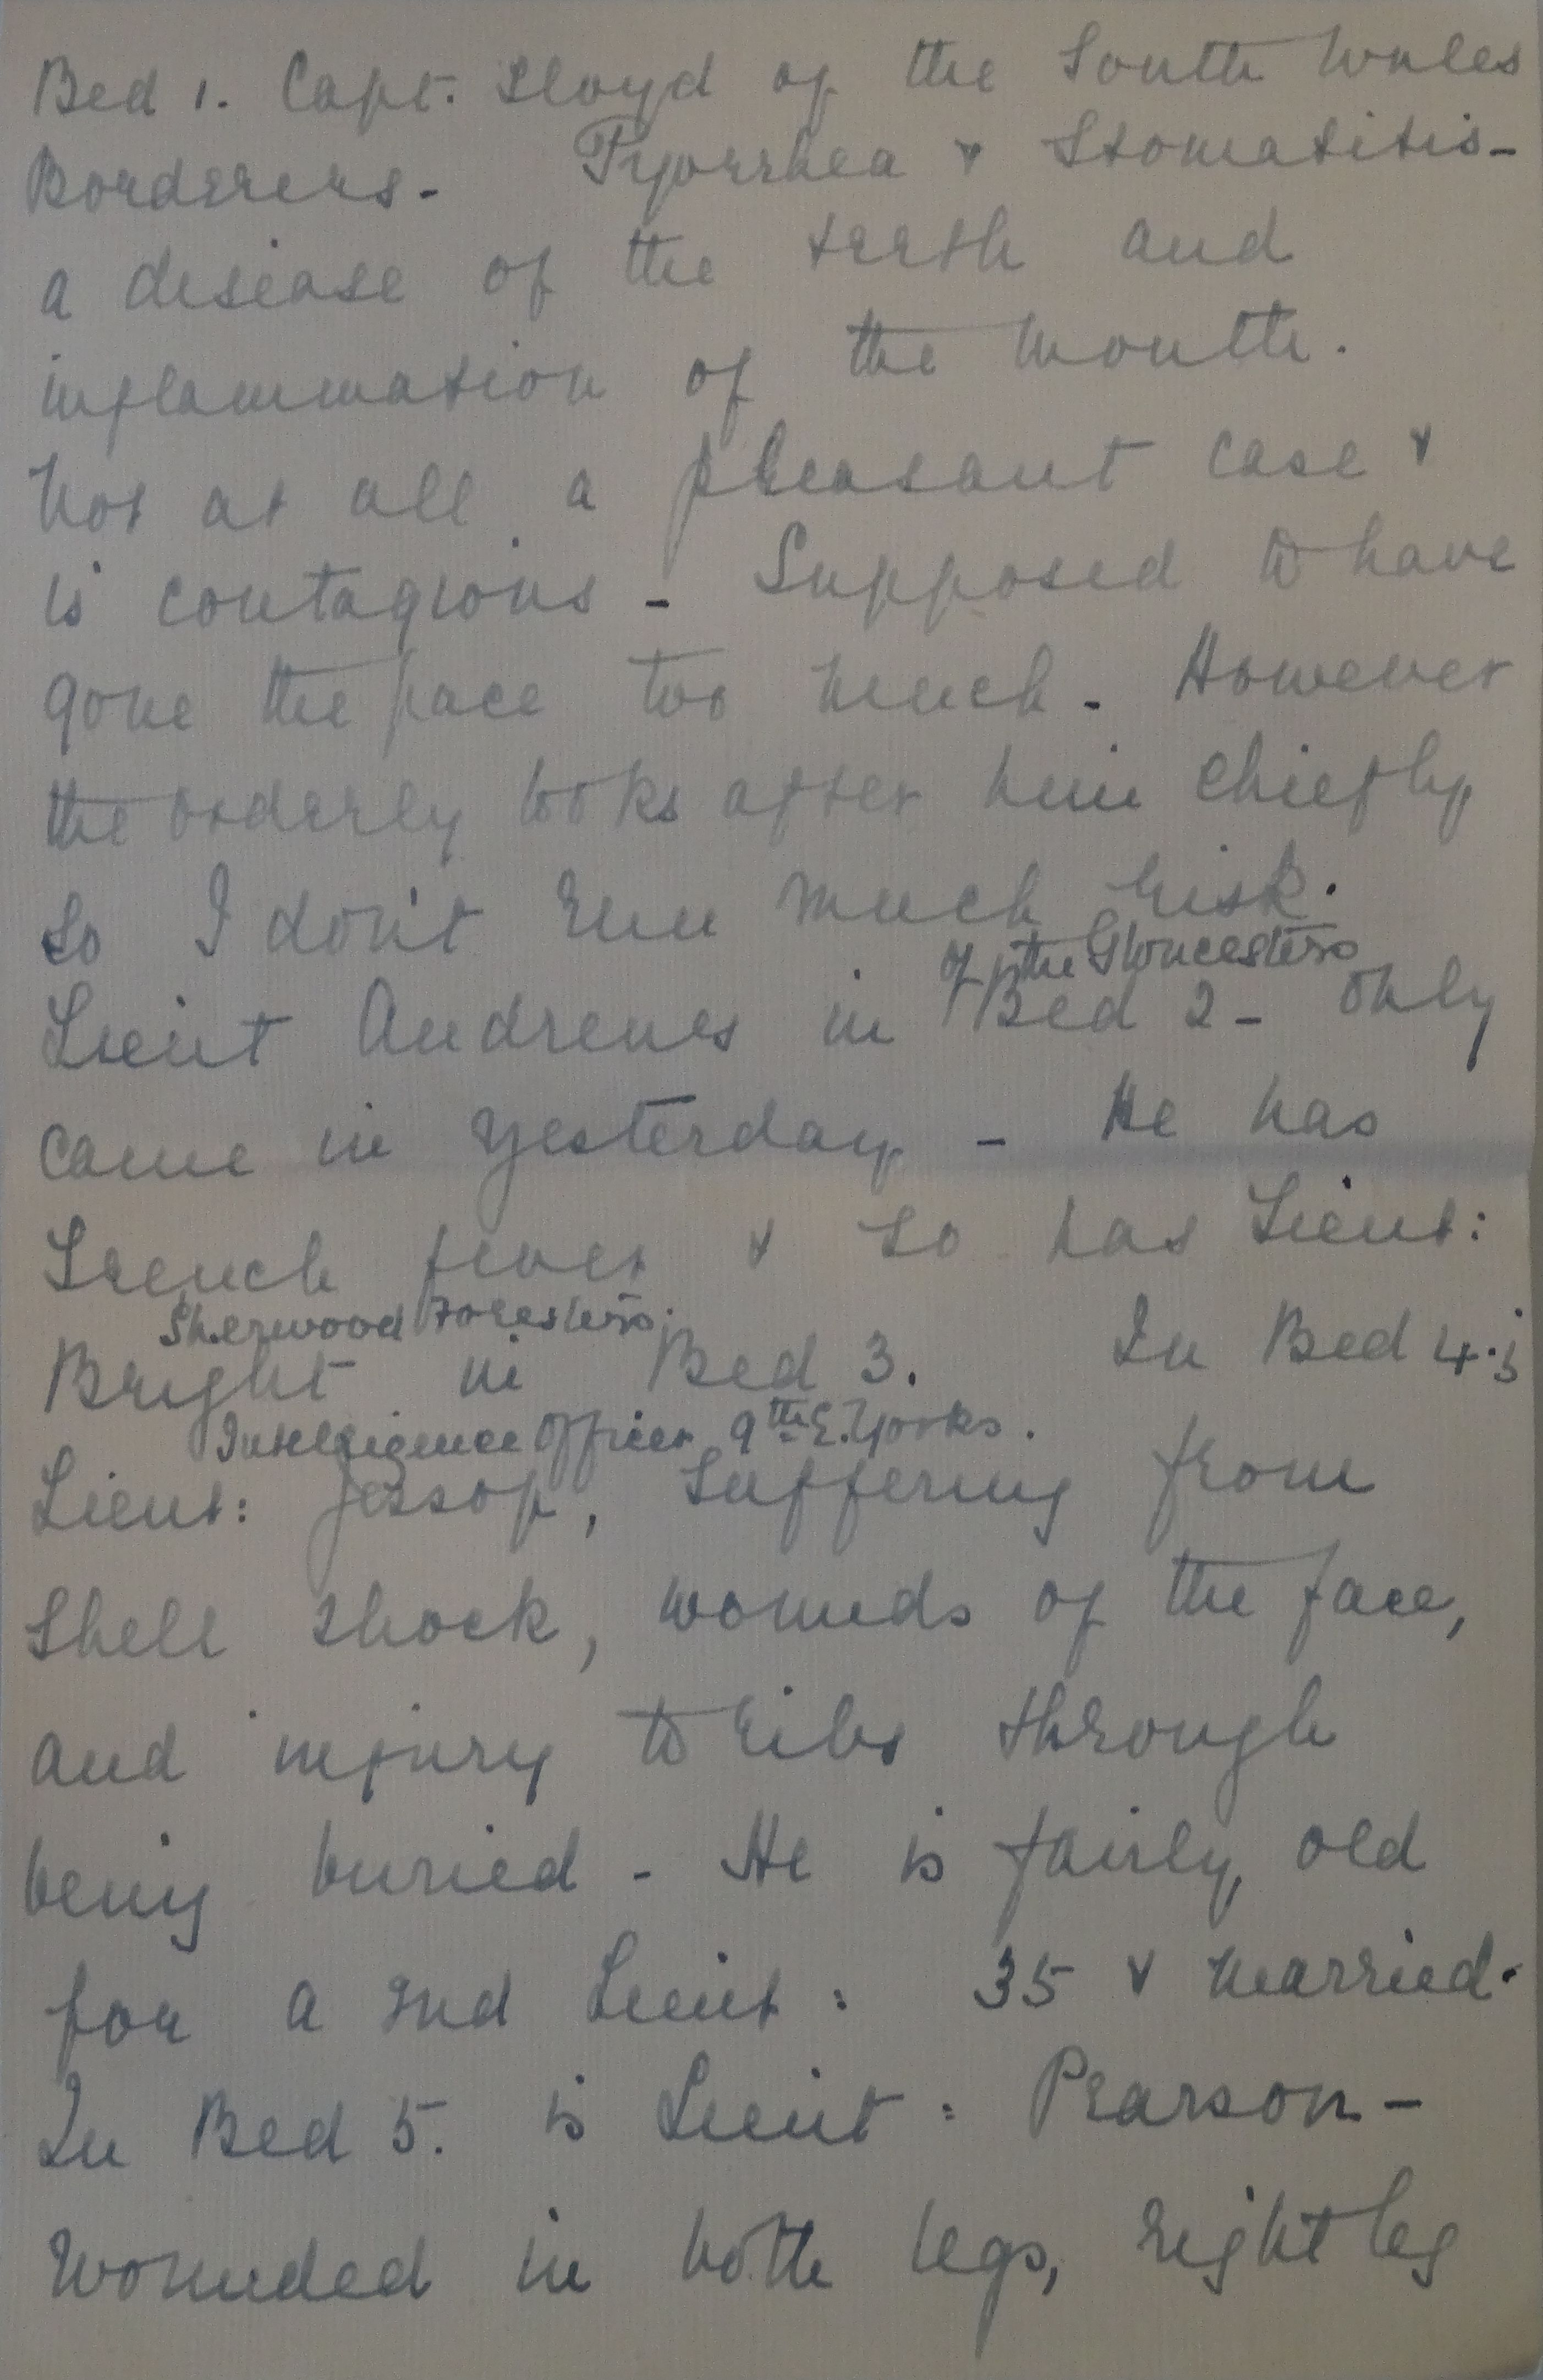 Bed 1. Capt. Lloyd of the South Wales
Borderers - Pyorrhea & Stomatitis -
a disease of the teeth and
inflammation of the mouth.
Not at all a pleasant case &
is contagious - Supposed to have
gone the pace too much. However
the orderly looks after him chiefly,
so I don't run much risk.
of the Gloucesters
Lieut Andrews in Bed 2 - only
came in yesterday - He has
Trench fever & so has Lieut:
Sherwood Foresters.
Bright in Bed 3. In Bed 4. is
Intelligence Officer 9th E. Yorks.
Lieut: Jessop, suffering from
shell shock, wounds of the face,
and injury to ribs through
being buried - He is fairly old
for a 2nd Lieut: 35 & married.
In Bed 5. is Lieut: Pearson -
wounded in both legs, right leg